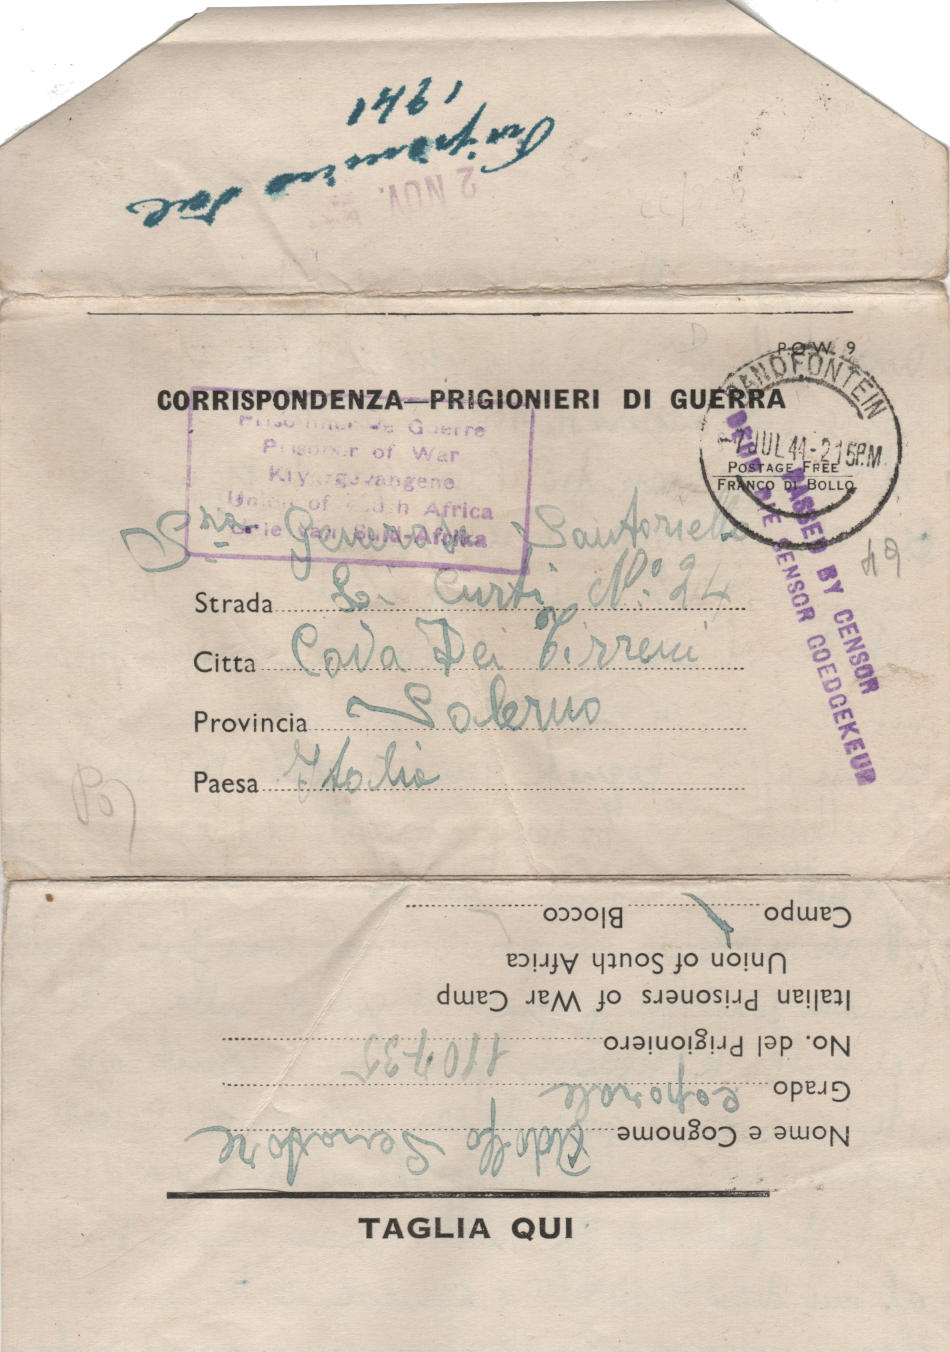 Prigioniero dal
1941
2 NOV.
P.O.W. 9
CORRISPONDENZA—PRIGIONIERI DI GUERRA
ZANDFONTEIN
JUL 44 - 2 15 P.M.
POSTAGE FREE
FRANCO DI BOLLO
Prisonnier de Guerre
Prisoner of War
Krygsgevangene
Union of South Africa
Unie van Suid-Afrika
PASSED BY CENSOR
DEUR DIE SENSOR GOEDGEKEUR
Sra Santoriello
49
Strada Li Curti No. 24
Citta Cava Dei Tirreni
Provincia Salerno
Paesa Italia
Nome e Cognome Adolfo Senatore
Grado caporale
No. del Prigioniero 110735
Italian Prisoners of War Camp
Union of South Africa
Campo Blocco
TAGLIA QUI